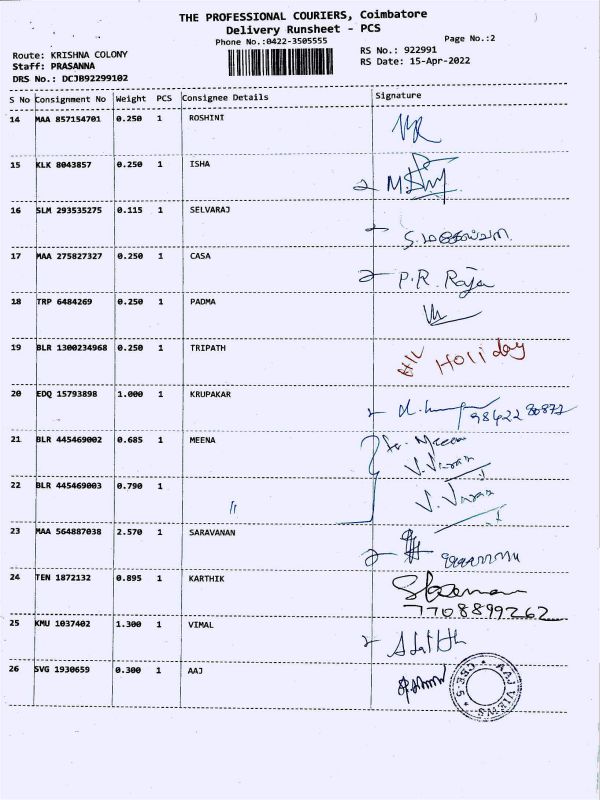 THE PROFESSIONAL COURIERS, Coimbatore
Delivery Runsheet - PCS
Phone No.:0422-3505555
Page No.:2
Route: KRISHNA COLONY
RS No.: 922991
Staff: PRASANNA
RS Date: 15-Apr-2022
DRS No.: DCJB92299102
S No Consignment No Weight PCS Consignee Details Signature
14 MAA 857154701 0.250 1 ROSHINI
15 KLK 8043857 0.250 1 ISHA
16 SLM 293535275 0.115 1 SELVARAJ
17 MAA 275827327 0.250 1 CASA P.R. Raja
18 TRP 6484269 0.250 1 PADMA
19 BLR 1300234968 0.250 1 TRIPATH Holiday
20 EDQ 15793898 1.000 1 KRUPAKAR 9842280872
21 BLR 445469002 0.685 1 MEENA Meena
22 BLR 445469003 0.790 1 "
23 MAA 564887038 2.570 1 SARAVANAN
24 TEN 1872132 0.895 1 KARTHIK
7708899262
25 KMU 1037402 1.300 1 VIMAL
26 SVG 1930659 0.300 1 AAJ
AAJ VIEWS CBE-5